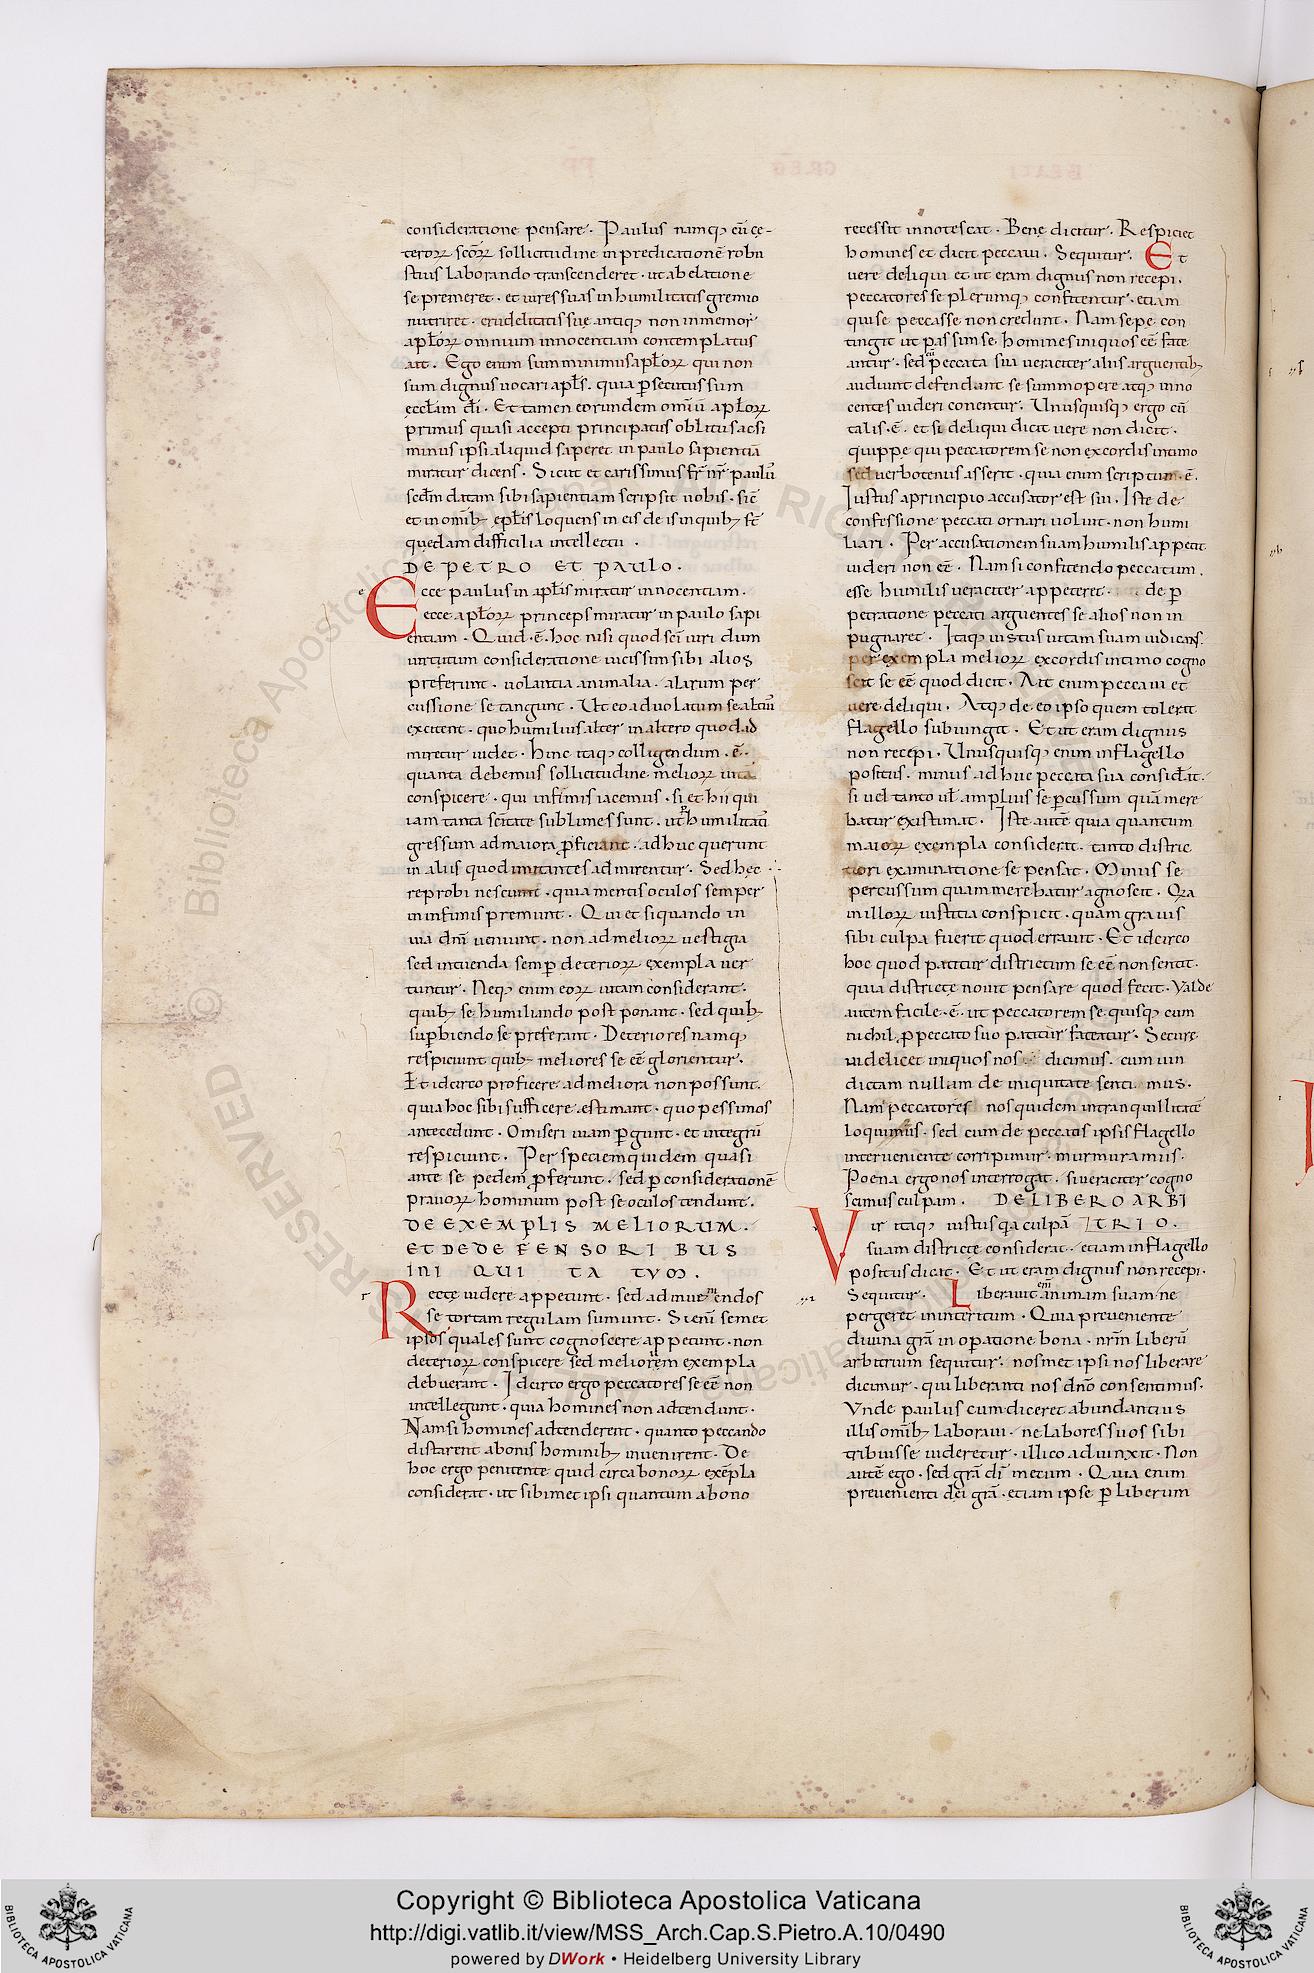 consideratione pensare. Paulus namq; cū cę-
terorꝝ scōrꝝ sollicitudine in predicationē robu
stius laborando transcenderet. ut ab elatione
se premeret. et uires suas in humilitatis gremio
nutriret. crudelitatis suę antiq; non inmemor
apłorꝝ omnium innocentiam contemplatus
ait. Ego enim sum minimus apłorꝝ qui non
sum dignus uocari apłs. quia ꝑsecutus sum
eccłam dī. Et tamen eorundem omiū apłorꝝ
primus quasi accepti principatus oblitus ac si
minus ipsi aliquid saperet in paulo sapientiā
miratur dicens. Sicut et carissimus fr̄ nr̄ paulus
scdm datam sibi sapientiam scripsit uobis. sic̄
et in omīb; epłis loquens in eis de is in quib; st̄
quędam difficilia intellectu.
DE PETRO ET PAULO.
e Ecce paulus in apłis miratur innocentiam.
ecce apłorꝝ princeps miratur in paulo sapi
entiam. Quid. ē. hoc nisi quod scī uiri dum
uirtutum consideratione uicissim sibi alios
preferunt. uolantia animalia. alarum per
cussione se tangunt. Ut eo ad uolatum se altiuſ
excitent. quo humilius alter in altero quod ad
miretur uidet. Hinc itaq; colligendum. ē.
quanta debemus sollicitudine meliorꝝ uitā
conspicere. qui infimis iacemus. si et hii qui
iam tanta scītate sublimes sunt. ut ꝑ humilitatis
gressum ad maiora ꝓficiant. adhuc querunt
in aliis quod imitantes admirentur. Sed hęc
reprobi nesciunt. quia mentis oculos semper
in infimis premunt. Qui et si quando in
uia dnī ueniunt. non ad meliorꝝ uestigia
sed intuenda semꝑ deteriorꝝ exempla ver
tuntur. Neq; enim eorꝝ uitam considerant.
quib; se humiliando post ponant. sed quib;
suꝑbiendo se preferant. Deteriores namq;
respiciunt quib; meliores se eē glorientur.
Et idcirco proficere ad meliora non possunt.
quia hoc sibi sufficere estimant. quo pessimos
antecedunt. O miseri uiam ꝑgunt. et integrū
respiciunt. Per speciem quidem quasi
ante se pedem ꝓferunt. sed ꝑ considerationē
prauorꝝ hominum post se oculos tendunt.
DE EXEMPLIS MELIORUM.
ET DE DEFENSORIBUS
INIQUITATUM.
r Recte uidere appetunt. sed ad inueniendos
se tortam regulam sumunt. Si enī semet
ipsos quales sunt cognoscere appetunt. non
deteriorꝝ conspicere sed meliorem exempla
debuerant. Idcirco ergo peccatores se eē non
intellegunt. quia homines non adtendunt.
Nam si homines adtenderent. quanto peccando
distarent a bonis hominib; inuenirent. De
hoc ergo penitente quid circa bonorꝝ exēpla
considerat. ut sibimet ipsi quantum a bono
recessit innotescat. Bene dicitur. Respiciet
homines et dicit peccaui. Sequitur. Et
uere deliqui et ut eram dignus non recepi.
peccatores se plerumq; confitentur. etiam
qui se peccasse non credunt. Nam sepe con
tingit ut passim se homines iniquos eē fate
antur. sed cū peccata sua ueraciter aliis arguentib;
audiunt defendunt se summopere atq; inno
centes uideri conentur. Unusquisq; ergo cū
talis. ē. et si deliqui dicit uere non dicit.
quippe qui peccatorem se non ex cordis intimo
sed uerbotenus asserit. quia enim scriptum. ē.
Iustus a principio accusator est sui. Iste de
confessione peccati ornari uoluit. non humi
liari. Per accusationem suam humilis appetit
uideri non eē. Nam si confitendo peccatum.
esse humilis ueraciter appeteret. de ꝑ
petratione peccati arguentes se alios non in
pugnaret. Itaq; iustus uitam suam iudicanſ.
per exempla meliorꝝ ex cordis intimo cogno
scit se eē quod dicit. Ait enim peccaui et
uere deliqui. Atq; de eo ipso quem tolerat
flagello subiungit. Et ut eram dignus
non recepi. Unusquisq; enim in flagello
positus. minus adhuc peccata sua considerat.
si uel tanto uł amplius se ꝑcussum quā mere
batur existimat. Iste autē quia quantum
maiorꝝ exempla considerat. tanto distric
tiori examinatione se pensat. Minus se
percussum quam merebatur agnoscit. Q̄a
in illorꝝ iustitia conspicit. quam grauis
sibi culpa fuerit quod errauit. Et idcirco
hoc quod patitur districtum se eē non sentit.
quia districte nouit pensare quod fecit. Valde
autem facile. ē. ut peccatorem se quisq; cum
nichil ꝓ peccato suo patitur fateatur. Secure
uidelicet iniquos nos dicimus. cum uin
dictam nullam de iniquitate sentimus.
Nam peccatores nos quidem in tranquillitatē
loquimus. sed cum de peccatis ipsis flagello
interueniente corripimur. murmuramus.
Poena ergo nos interrogat. si ueraciter cogno
scimus culpam. DE LIBERO ARBI
Vir itaq; iustus qa culpā TRIO.
suam districte considerat. etiam in flagello
positus dicit. Et ut eram dignus non recepi.
Sequitur. Liberauit enim animam suam ne
pergeret in interitum. Quia preueniente
diuina grā in oꝑatione bona. nrm̄ liberū
arbitrium sequitur. nosmet ipsi nos liberare
dicimur. qui liberanti nos dnō consentimus.
Vnde paulus cum diceret abundantius
illis omīb; laboraui. ne labores suos sibi
tribuisse uideretur. illico adiunxit. Non
autē ego. sed grā dī mecum. Quia enim
prevenienti dei grā. etiam ipse ꝑ liberum
© Biblioteca Apostolica Vaticana ALL RIGHTS RESERVED
Copyright © Biblioteca Apostolica Vaticana
http://digi.vatlib.it/view/MSS_Arch.Cap.S.Pietro.A.10/0490
powered by DWork • Heidelberg University Library
BIBLIOTECA APOSTOLICA VATICANA
BIBLIOTECA APOSTOLICA VATICANA